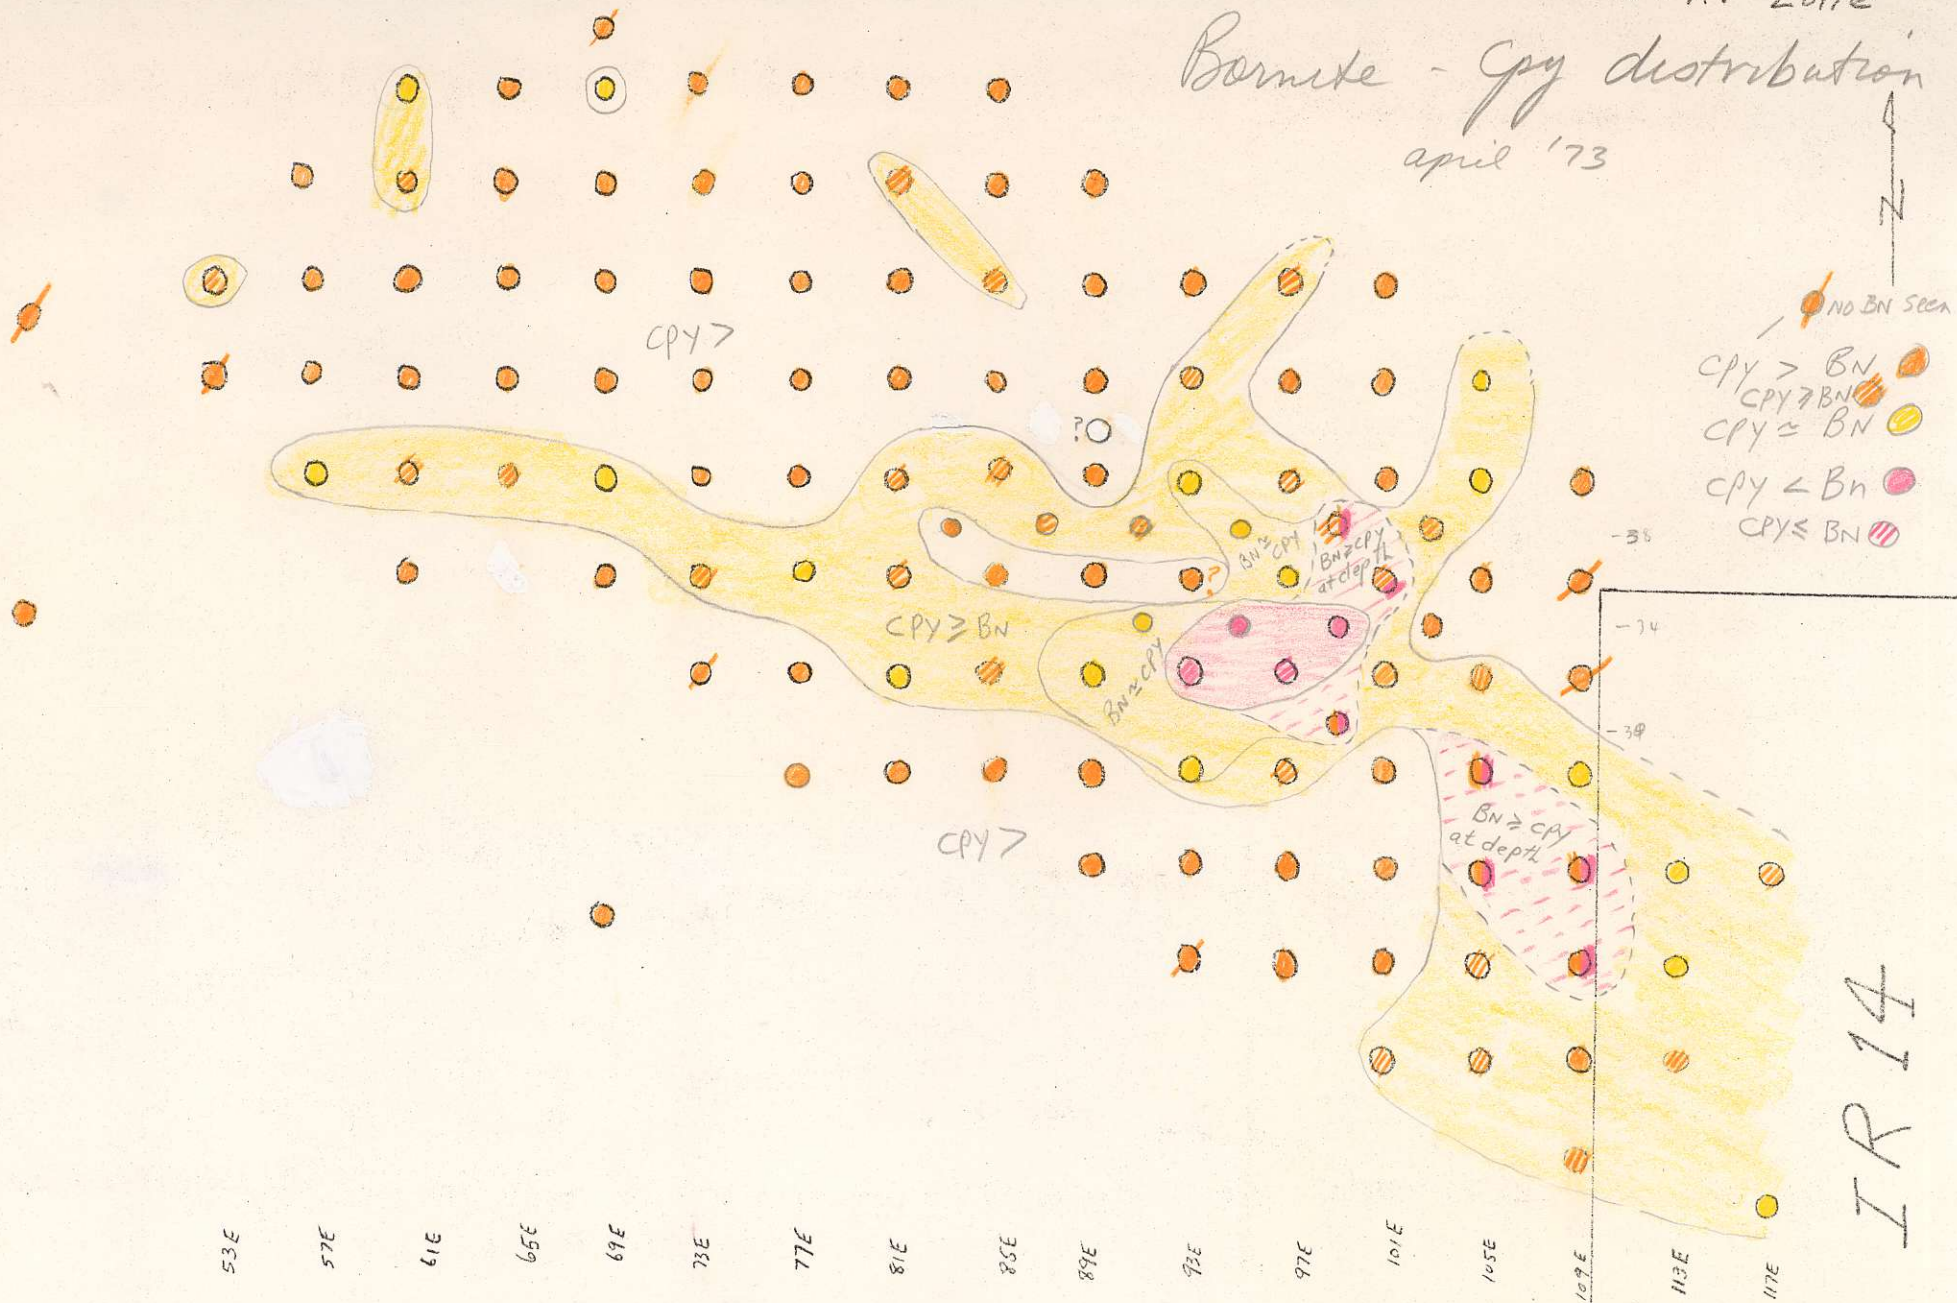 Zone
Bornite - Cpy distribution
april '73
N
NO BN Seen
CPY > BN
CPY ≥ BN
CPY ≃ BN
CPY < Bn
CPY ≤ BN
CPY >
?
-38
BN ≃ CPY
BN ≥ CPY
at depth
?
CPY ≥ BN
-34
BN ≃ CPY
-30
BN ≥ CPY
at depth
CPY >
IR 14
53E 57E 61E 65E 69E 73E 77E 81E 85E 89E 93E 97E 101E 105E 109E 113E 117E